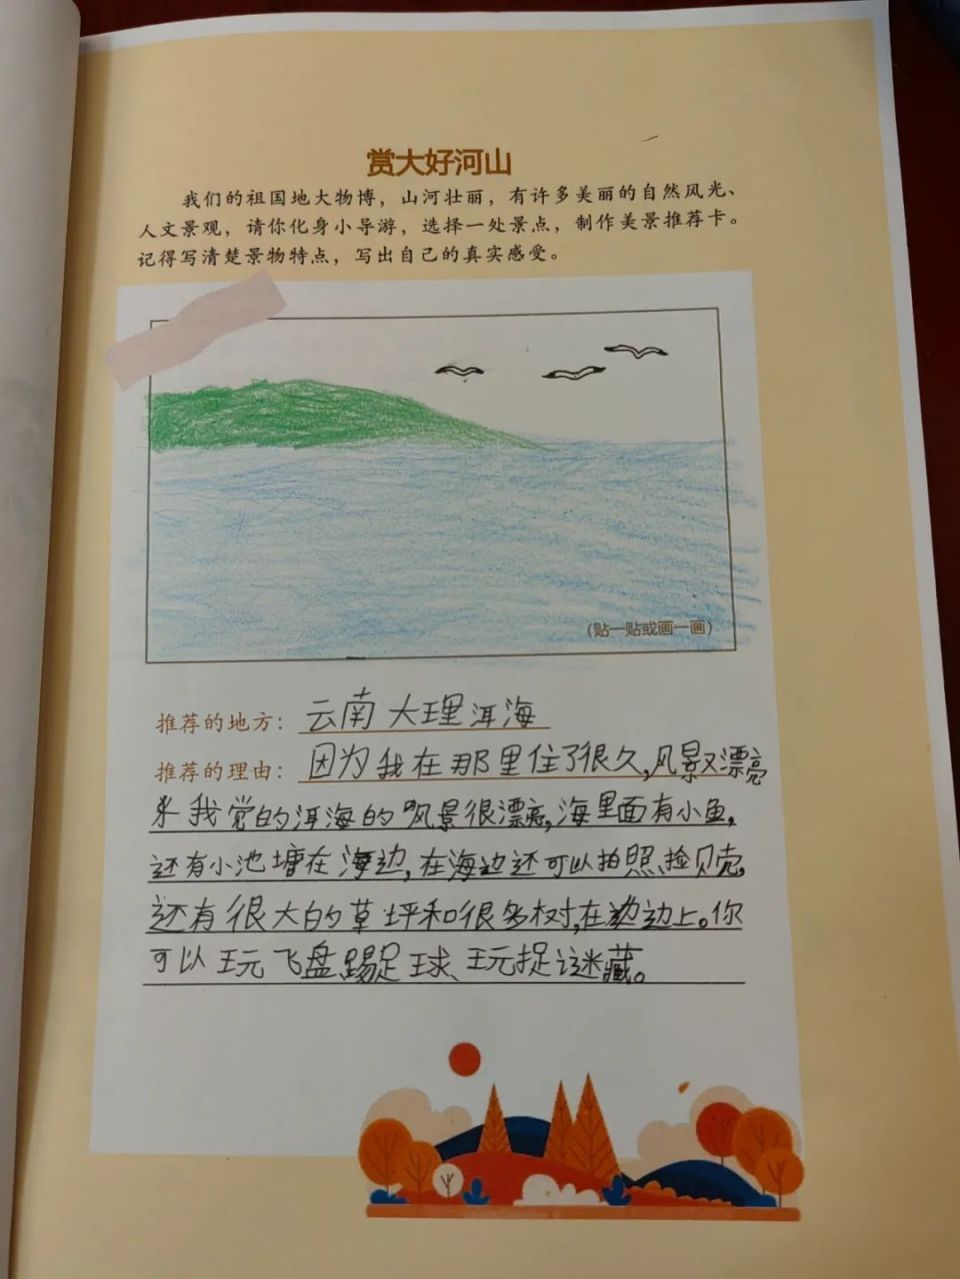 赏大好河山
我们的祖国地大物博，山河壮丽，有许多美丽的自然风光、
人文景观，请你化身小导游，选择一处景点，制作美景推荐卡。
记得写清楚景物特点，写出自己的真实感受。
（贴一贴或画一画）
推荐的地方：云南大理洱海
推荐的理由：因为我在那里住了很久,风景又漂亮
我觉的洱海的风景很漂亮,海里面有小鱼,
还有小池塘在海边,在海边还可以拍照、捡贝壳。
还有很大的草坪和很多树,在边上。你
可以玩飞盘、踢足球、玩捉谜藏。